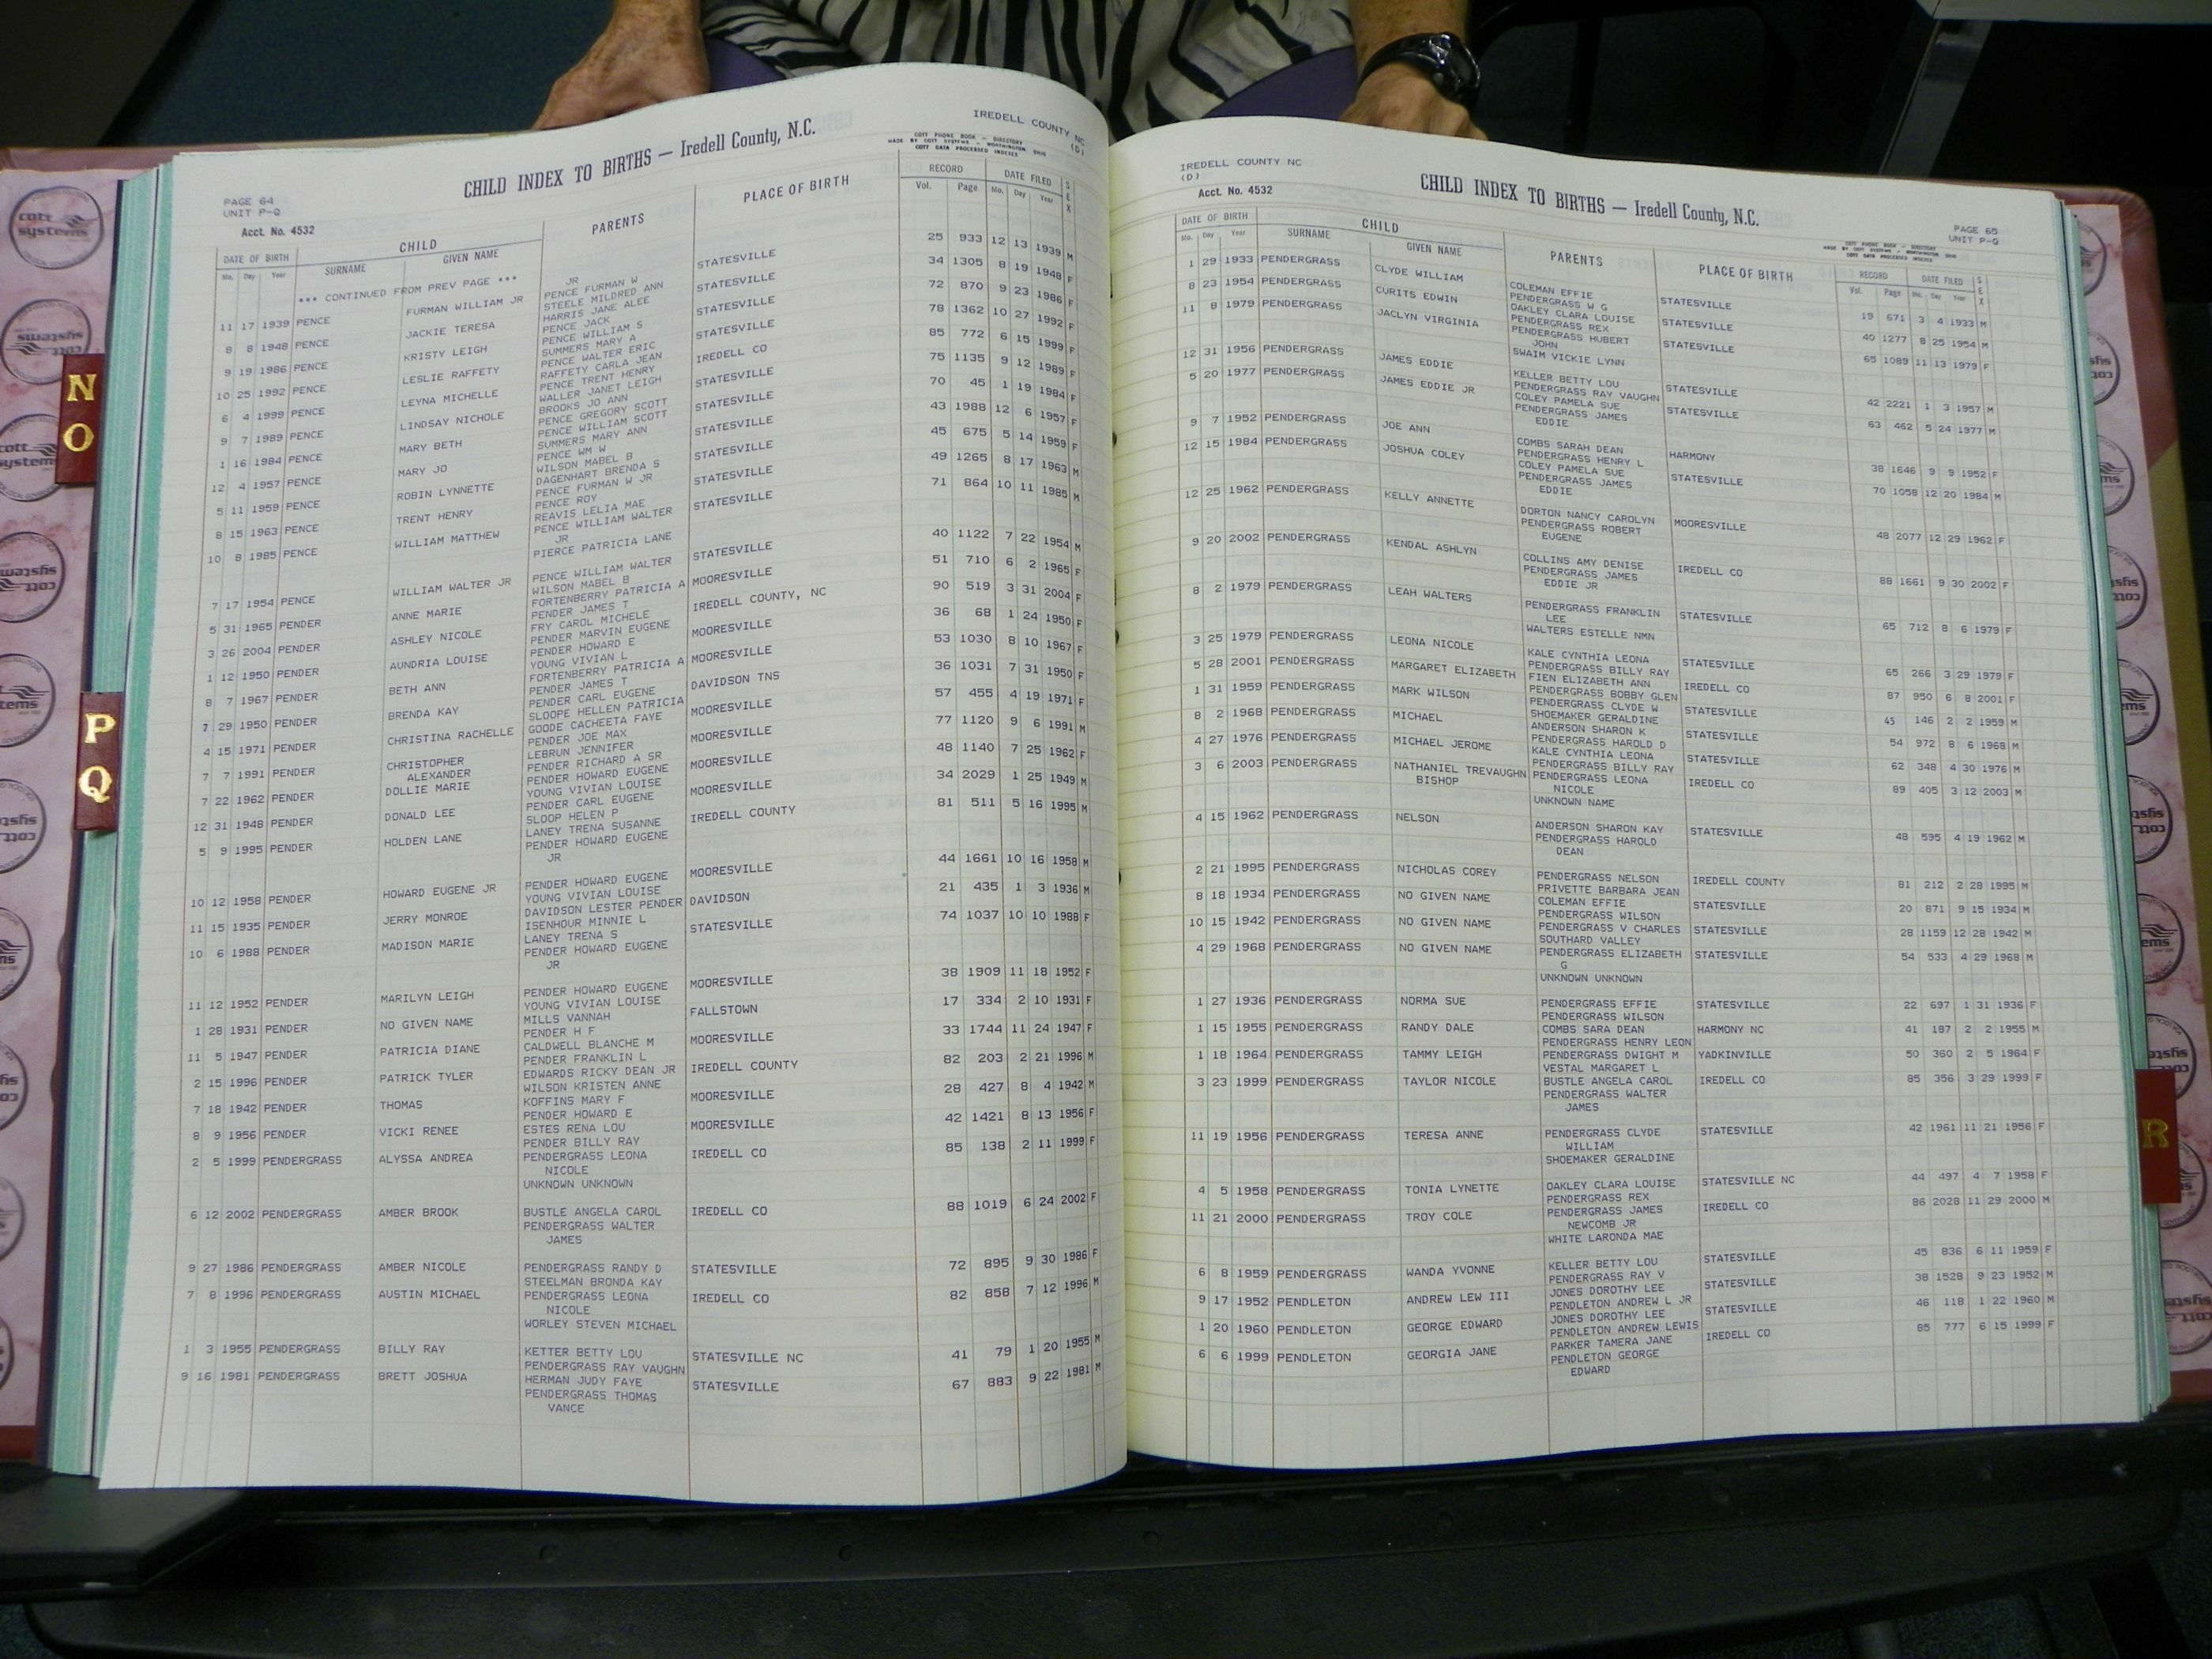 PAGE 64
UNIT P-Q
Acct. No. 4532
CHILD INDEX TO BIRTHS — Iredell County, N.C.
IREDELL COUNTY NC
(D)
COTT PHONE BOOK — DIRECTORY
MADE BY COTT SYSTEMS — WORTHINGTON OHIO
COTT DATA PROCESSED INDEXES
DATE OF BIRTH CHILD PARENTS PLACE OF BIRTH RECORD DATE FILED SEX
Mo. Day Year SURNAME GIVEN NAME Vol. Page Mo. Day Year
*** CONTINUED FROM PREV PAGE ***
JR
11 17 1939 PENCE FURMAN WILLIAM JR PENCE FURMAN W STATESVILLE 25 933 12 13 1939 M
STEELE MILDRED ANN
8 8 1948 PENCE JACKIE TERESA HARRIS JANE ALEE STATESVILLE 34 1305 8 19 1948 F
PENCE JACK
9 19 1986 PENCE KRISTY LEIGH PENCE WILLIAM S STATESVILLE 72 870 9 23 1986 F
SUMMERS MARY A
10 25 1992 PENCE LESLIE RAFFETY PENCE WALTER ERIC STATESVILLE 78 1362 10 27 1992 F
RAFFETY CARLA JEAN
6 4 1999 PENCE LEYNA MICHELLE PENCE TRENT HENRY IREDELL CO 85 772 6 15 1999 F
WALLER JANET LEIGH
9 7 1989 PENCE LINDSAY NICHOLE BROOKS JO ANN STATESVILLE 75 1135 9 12 1989 F
PENCE GREGORY SCOTT
1 16 1984 PENCE MARY BETH PENCE WILLIAM SCOTT STATESVILLE 70 45 1 19 1984 F
SUMMERS MARY ANN
12 4 1957 PENCE MARY JO PENCE WM W STATESVILLE 43 1988 12 6 1957 F
WILSON MABEL B
5 11 1959 PENCE ROBIN LYNNETTE DAGENHART BRENDA S STATESVILLE 45 675 5 14 1959 F
PENCE FURMAN W JR
8 15 1963 PENCE TRENT HENRY PENCE ROY STATESVILLE 49 1265 8 17 1963 M
REAVIS LELIA MAE
10 8 1985 PENCE WILLIAM MATTHEW PENCE WILLIAM WALTER STATESVILLE 71 864 10 11 1985 M
JR
PIERCE PATRICIA LANE
7 17 1954 PENCE WILLIAM WALTER JR PENCE WILLIAM WALTER STATESVILLE 40 1122 7 22 1954 M
WILSON MABEL B
5 31 1965 PENDER ANNE MARIE FORTENBERRY PATRICIA A MOORESVILLE 51 710 6 2 1965 F
PENDER JAMES T
3 26 2004 PENDER ASHLEY NICOLE FRY CAROL MICHELE IREDELL COUNTY, NC 90 519 3 31 2004 F
PENDER MARVIN EUGENE
1 12 1950 PENDER AUNDRIA LOUISE PENDER HOWARD E MOORESVILLE 36 68 1 24 1950 F
YOUNG VIVIAN L
8 7 1967 PENDER BETH ANN FORTENBERRY PATRICIA A MOORESVILLE 53 1030 8 10 1967 F
PENDER JAMES T
7 29 1950 PENDER BRENDA KAY PENDER CARL EUGENE DAVIDSON TNS 36 1031 7 31 1950 F
SLOOPE HELLEN PATRICIA
4 15 1971 PENDER CHRISTINA RACHELLE GOODE CACHEETA FAYE MOORESVILLE 57 455 4 19 1971 F
PENDER JOE MAX
7 7 1991 PENDER CHRISTOPHER LEBRUN JENNIFER MOORESVILLE 77 1120 9 6 1991 M
ALEXANDER PENDER RICHARD A SR
7 22 1962 PENDER DOLLIE MARIE PENDER HOWARD EUGENE MOORESVILLE 48 1140 7 25 1962 F
YOUNG VIVIAN LOUISE
12 31 1948 PENDER DONALD LEE PENDER CARL EUGENE MOORESVILLE 34 2029 1 25 1949 M
SLOOP HELEN P
5 9 1995 PENDER HOLDEN LANE LANEY TRENA SUSANNE IREDELL COUNTY 81 511 5 16 1995 M
PENDER HOWARD EUGENE
JR
10 12 1958 PENDER HOWARD EUGENE JR PENDER HOWARD EUGENE MOORESVILLE 44 1661 10 16 1958 M
YOUNG VIVIAN LOUISE
11 15 1935 PENDER JERRY MONROE DAVIDSON LESTER PENDER DAVIDSON 21 435 1 3 1936 M
ISENHOUR MINNIE L
10 6 1988 PENDER MADISON MARIE LANEY TRENA S STATESVILLE 74 1037 10 10 1988 F
PENDER HOWARD EUGENE
JR
11 12 1952 PENDER MARILYN LEIGH PENDER HOWARD EUGENE MOORESVILLE 38 1909 11 18 1952 F
YOUNG VIVIAN LOUISE
1 28 1931 PENDER NO GIVEN NAME MILLS VANNAH FALLSTOWN 17 334 2 10 1931 F
PENDER H F
11 5 1947 PENDER PATRICIA DIANE CALDWELL BLANCHE M MOORESVILLE 33 1744 11 24 1947 F
PENDER FRANKLIN L
2 15 1996 PENDER PATRICK TYLER EDWARDS RICKY DEAN JR IREDELL COUNTY 82 203 2 21 1996 M
WILSON KRISTEN ANNE
7 18 1942 PENDER THOMAS KOFFINS MARY F MOORESVILLE 28 427 8 4 1942 M
PENDER HOWARD E
8 9 1956 PENDER VICKI RENEE ESTES RENA LOU MOORESVILLE 42 1421 8 13 1956 F
PENDER BILLY RAY
2 5 1999 PENDERGRASS ALYSSA ANDREA PENDERGRASS LEONA IREDELL CO 85 138 2 11 1999 F
NICOLE
UNKNOWN UNKNOWN
6 12 2002 PENDERGRASS AMBER BROOK BUSTLE ANGELA CAROL IREDELL CO 88 1019 6 24 2002 F
PENDERGRASS WALTER
JAMES
9 27 1986 PENDERGRASS AMBER NICOLE PENDERGRASS RANDY D STATESVILLE 72 895 9 30 1986 F
STEELMAN BRONDA KAY
7 8 1996 PENDERGRASS AUSTIN MICHAEL PENDERGRASS LEONA IREDELL CO 82 858 7 12 1996 M
NICOLE
WORLEY STEVEN MICHAEL
1 3 1955 PENDERGRASS BILLY RAY KETTER BETTY LOU STATESVILLE NC 41 79 1 20 1955 M
PENDERGRASS RAY VAUGHN
9 16 1981 PENDERGRASS BRETT JOSHUA HERMAN JUDY FAYE STATESVILLE 67 883 9 22 1981 M
PENDERGRASS THOMAS
VANCE
IREDELL COUNTY NC
(D)
Acct. No. 4532
CHILD INDEX TO BIRTHS — Iredell County, N.C.
PAGE 65
UNIT P-Q
COTT PHONE BOOK — DIRECTORY
MADE BY COTT SYSTEMS — WORTHINGTON OHIO
COTT DATA PROCESSED INDEXES
DATE OF BIRTH CHILD PARENTS PLACE OF BIRTH RECORD DATE FILED SEX
Mo. Day Year SURNAME GIVEN NAME Vol. Page Mo. Day Year
1 29 1933 PENDERGRASS CLYDE WILLIAM COLEMAN EFFIE STATESVILLE 19 671 3 4 1933 M
PENDERGRASS W G
8 23 1954 PENDERGRASS CURITS EDWIN OAKLEY CLARA LOUISE STATESVILLE 40 1277 8 25 1954 M
PENDERGRASS REX
11 8 1979 PENDERGRASS JACLYN VIRGINIA PENDERGRASS HUBERT STATESVILLE 65 1089 11 13 1979 F
JOHN
SWAIM VICKIE LYNN
12 31 1956 PENDERGRASS JAMES EDDIE KELLER BETTY LOU STATESVILLE 42 2221 1 3 1957 M
PENDERGRASS RAY VAUGHN
5 20 1977 PENDERGRASS JAMES EDDIE JR COLEY PAMELA SUE STATESVILLE 63 462 5 24 1977 M
PENDERGRASS JAMES
EDDIE
9 7 1952 PENDERGRASS JOE ANN COMBS SARAH DEAN HARMONY 38 1646 9 9 1952 F
PENDERGRASS HENRY L
12 15 1984 PENDERGRASS JOSHUA COLEY COLEY PAMELA SUE STATESVILLE 70 1058 12 20 1984 M
PENDERGRASS JAMES
EDDIE
12 25 1962 PENDERGRASS KELLY ANNETTE DORTON NANCY CAROLYN MOORESVILLE 48 2077 12 29 1962 F
PENDERGRASS ROBERT
EUGENE
9 20 2002 PENDERGRASS KENDAL ASHLYN COLLINS AMY DENISE IREDELL CO 88 1661 9 30 2002 F
PENDERGRASS JAMES
EDDIE JR
8 2 1979 PENDERGRASS LEAH WALTERS PENDERGRASS FRANKLIN STATESVILLE 65 712 8 6 1979 F
LEE
WALTERS ESTELLE NMN
3 25 1979 PENDERGRASS LEONA NICOLE KALE CYNTHIA LEONA STATESVILLE 65 266 3 29 1979 F
PENDERGRASS BILLY RAY
5 28 2001 PENDERGRASS MARGARET ELIZABETH FIEN ELIZABETH ANN IREDELL CO 87 950 6 8 2001 F
PENDERGRASS BOBBY GLEN
1 31 1959 PENDERGRASS MARK WILSON PENDERGRASS CLYDE W STATESVILLE 45 146 2 2 1959 M
SHOEMAKER GERALDINE
8 2 1968 PENDERGRASS MICHAEL ANDERSON SHARON K STATESVILLE 54 972 8 6 1968 M
PENDERGRASS HAROLD D
4 27 1976 PENDERGRASS MICHAEL JEROME KALE CYNTHIA LEONA STATESVILLE 62 348 4 30 1976 M
PENDERGRASS BILLY RAY
3 6 2003 PENDERGRASS NATHANIEL TREVAUGHN PENDERGRASS LEONA IREDELL CO 89 405 3 12 2003 M
BISHOP NICOLE
UNKNOWN NAME
4 15 1962 PENDERGRASS NELSON ANDERSON SHARON KAY STATESVILLE 48 595 4 19 1962 M
PENDERGRASS HAROLD
DEAN
2 21 1995 PENDERGRASS NICHOLAS COREY PENDERGRASS NELSON IREDELL COUNTY 81 212 2 28 1995 M
PRIVETTE BARBARA JEAN
8 18 1934 PENDERGRASS NO GIVEN NAME COLEMAN EFFIE STATESVILLE 20 871 9 15 1934 M
PENDERGRASS WILSON
10 15 1942 PENDERGRASS NO GIVEN NAME PENDERGRASS V CHARLES STATESVILLE 28 1159 12 28 1942 M
SOUTHARD VALLEY
4 29 1968 PENDERGRASS NO GIVEN NAME PENDERGRASS ELIZABETH STATESVILLE 54 533 4 29 1968 M
G
UNKNOWN UNKNOWN
1 27 1936 PENDERGRASS NORMA SUE PENDERGRASS EFFIE STATESVILLE 22 697 1 31 1936 F
PENDERGRASS WILSON
1 15 1955 PENDERGRASS RANDY DALE COMBS SARA DEAN HARMONY NC 41 187 2 2 1955 M
PENDERGRASS HENRY LEON
1 18 1964 PENDERGRASS TAMMY LEIGH PENDERGRASS DWIGHT M YADKINVILLE 50 360 2 5 1964 F
VESTAL MARGARET L
3 23 1999 PENDERGRASS TAYLOR NICOLE BUSTLE ANGELA CAROL IREDELL CO 85 356 3 29 1999 F
PENDERGRASS WALTER
JAMES
11 19 1956 PENDERGRASS TERESA ANNE PENDERGRASS CLYDE STATESVILLE 42 1961 11 21 1956 F
WILLIAM
SHOEMAKER GERALDINE
4 5 1958 PENDERGRASS TONIA LYNETTE OAKLEY CLARA LOUISE STATESVILLE NC 44 497 4 7 1958 F
PENDERGRASS REX
11 21 2000 PENDERGRASS TROY COLE PENDERGRASS JAMES IREDELL CO 86 2028 11 29 2000 M
NEWCOMB JR
WHITE LARONDA MAE
6 8 1959 PENDERGRASS WANDA YVONNE KELLER BETTY LOU STATESVILLE 45 836 6 11 1959 F
PENDERGRASS RAY V
9 17 1952 PENDLETON ANDREW LEW III JONES DOROTHY LEE STATESVILLE 38 1528 9 23 1952 M
PENDLETON ANDREW L JR
1 20 1960 PENDLETON GEORGE EDWARD JONES DOROTHY LEE STATESVILLE 46 118 1 22 1960 M
PENDLETON ANDREW LEWIS
6 6 1999 PENDLETON GEORGIA JANE PARKER TAMERA JANE IREDELL CO 85 777 6 15 1999 F
PENDLETON GEORGE
EDWARD
N
O
P
Q
R
cott
systems